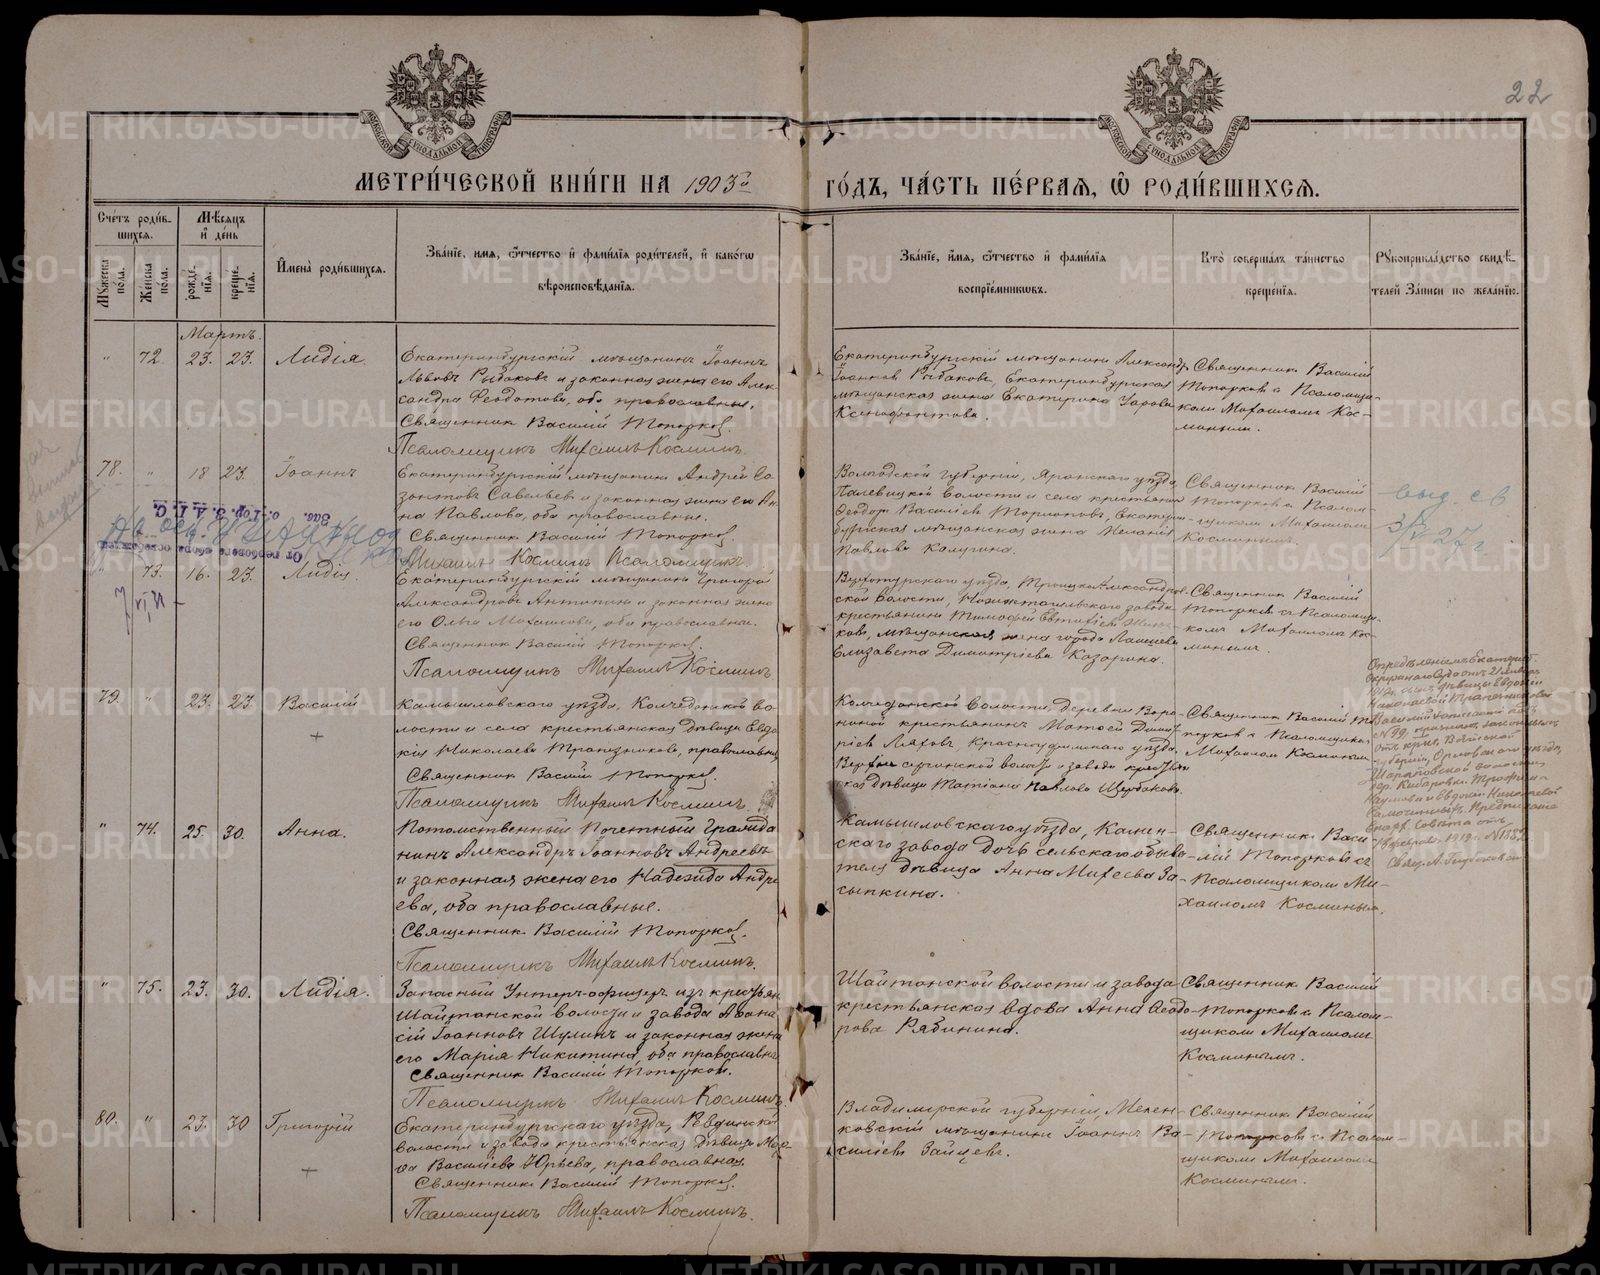 22
МЕТРИ́ЧЕСКОЙ КНИ́ГИ НА 1903й ГО́ДЪ, ЧА́СТЬ ПЕ́РВАЯ, Ѽ РОДИ́ВШИХСЯ.
Сче́тъ роди́в-
шихся.
Мѣ́сяцъ
и де́нь
Мꙋжеска по́ла.
Женска по́ла.
рожде́нїя.
креще́нїя.
Имена̀ роди́вшихся.
Зва́нїе, имя, ѻ҆́тчество и фами́лїя роди́телей, и како́гѡ
вѣроисповѣ́данїя.
Зва́нїе, и́мя, ѻ҆́тчество и фами́лїя
воспрїе́мникѡвъ.
Кто̀ соверша́лъ та́инство
креще́нїя.
Рꙋкоприкла́дство свидѣ́-
телей за́писи по жела́нїю.
Мартъ.
" 72. 23. 23. Лидія.
Екатеринбургскій мѣщанинъ Іоаннъ
Львовъ Рыбаковъ и законная жена его Алек-
сандра Ѳеодотова, оба православные.
Священник Василій Топорков.
Псаломщикъ Михаилъ Косминъ.
Екатеринбургскій мѣщанинъ Александръ
Іоанновъ Рыбаковъ, Екатеринбургская
мѣщанская жена Екатерина
Ксенофонтова.
Священник Василій
Топорков с Псаломщи-
комъ Михаиломъ Кос-
минымъ.
78. " 18 23. Іоаннъ
Екатеринбургскій мѣщанинъ Андрей Со-
зонтовъ Савельевъ и законная жена его Ан-
на Павлова, оба православные.
Священник Василій Топорков.
Михаилъ Косминъ Псаломщикъ.
Вологодской губерніи, Яренскаго уѣзда
Палевицкой волости и села крестьянин
Ѳеодоръ Васильевъ Торлоповъ, Екатерин-
бургская мѣщанская жена Меланія
Павлова Калугина.
Священник Василій
Топорков с Псалом-
щикомъ Михаиломъ
Косминымъ.
выд. с в
3/V 27 г.
Зав. о. Гор. З. А. Г. С.
От гербового сбора освобожден
" 73. 16. 23. Лидія.
Екатеринбургскій мѣщанинъ Григорій
Александровъ Антипинъ и законная жена
его Ольга Михаилова, оба православные.
Священник Василій Топорков.
Псаломщикъ Михаилъ Косминъ.
Верхотурскаго уѣзда, Троицко-Александров-
ской волости, Нижнетагильскаго завода
крестьянинъ Тимофей Евтихіевъ
ковъ, мѣщанская жена города Лаишева
Елизавета Димитріева Казарина.
Священник Василій
Топорков с Псаломщи-
комъ Михаиломъ Кос-
минымъ.
79. " 23. 23. Василій
Камышловскаго уѣзда, Колчеданской во-
лости и села крестьянская дѣвица Евдо-
кія Николаева Трапезникова, православная.
Священник Василій Топорков.
Псаломщикъ Михаилъ Косминъ.
Колчеданской волости, деревни
крестьянинъ Матѳей Димит-
ріевъ Ляховъ, Красноуфимскаго уѣзда,
Верхне сергинской волости и завода крестьян-
ская дѣвица Татіана Павлова Щербакова.
Священник Василій То-
порков с Псаломщиком
Михаилом Косминым.
Опредѣленіемъ Екатеринб.
Окружнаго Суда отъ 21 Января
Николаевой Трапезниковой
Василій записанный подъ
№ 79, признанъ законнымъ
отъ крест. Вятской
губерніи, Орловскаго уѣзда,
Шараповской волости
" 74. 25. 30. Анна.
Потомственный Почетный Гражда
нинъ Александръ Іоанновъ Андреевъ
и законная жена его Надежда Андре
ева, оба православные.
Священник Василій Топорков.
Псаломщикъ Михаилъ Косминъ.
Камышловскаго уѣзда, Камен-
скаго завода дочь сельскаго обыва-
теля дѣвица Анна Михеева За-
сыпкина.
Священник Васи
лій Топорков съ
Псаломщиком Ми-
хаиломъ Косминым.
" 75. 23. 30. Лидія.
Запасный Унтеръ-офицеръ изъ крестьян
Шайтанской волости и завода Аѳана
сій Іоанновъ Шулинъ и законная жена
его Марія Никитина, оба православны
Священник Василій Топорков.
Псаломщикъ Михаилъ Косминъ.
Шайтанской волости и завода
крестьянская вдова Анна Ѳеодо-
рова Рябинина.
Священник Василій
Топорков с Псалом-
щиком Михаилом
Косминымъ.
80. " 23. 30 Григорій
Екатеринбургскаго уѣзда, Ревдинской
волости и завода крестьянская дѣвица
Васильева Юрьева, православная.
Священник Василій Топорков.
Псаломщикъ Михаилъ Косминъ.
Владимірской губерніи, Мелен-
ковскій мѣщанинъ Іоаннъ Ва-
сильевъ Зайцевъ.
Священник Василій
Топорков с Псалом-
щиком Михаилом
Косминымъ.
METRIKI.GASO-URAL.RU